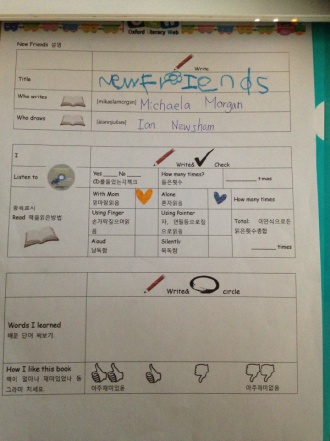 Oxford Literacy Web
New Friends 설명
Write
Title
NewFriends
Who writes
[mikaelamorgan] Michaela Morgan
Who draws
Ian Newsham
I
Write& Check
Listen to
Yes ____ No ____
CD를들었는지체크
How many times?
들은횟수
________ times
중복표시
Read 책을읽은방법
With Mom
엄마랑읽음
Alone
혼자읽음
How many times
Using Finger
손가락짚으며읽음
Using Pointer
Total:
________ times
Aloud
낭독함
Silently
묵독함
Write& circle
Words I learned
배운 단어 써보기
How I like this book
책이 얼마나 재미있었나 동그라미 치세요
아주재미있음
아주재미없음